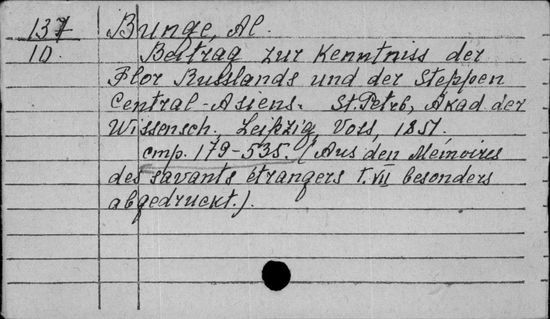 137 Bunge, Al.
10. Beitrag zur Kenntniss der
Flor Russlands und der Steppen
Central-Asiens. St.Petrb, Akad. der
Wissensch. Leipzig, Voss, 1851.
стр. 179-535. (Aus den Mémoires
des savants étrangers T. VII besonders
abgedruckt.).